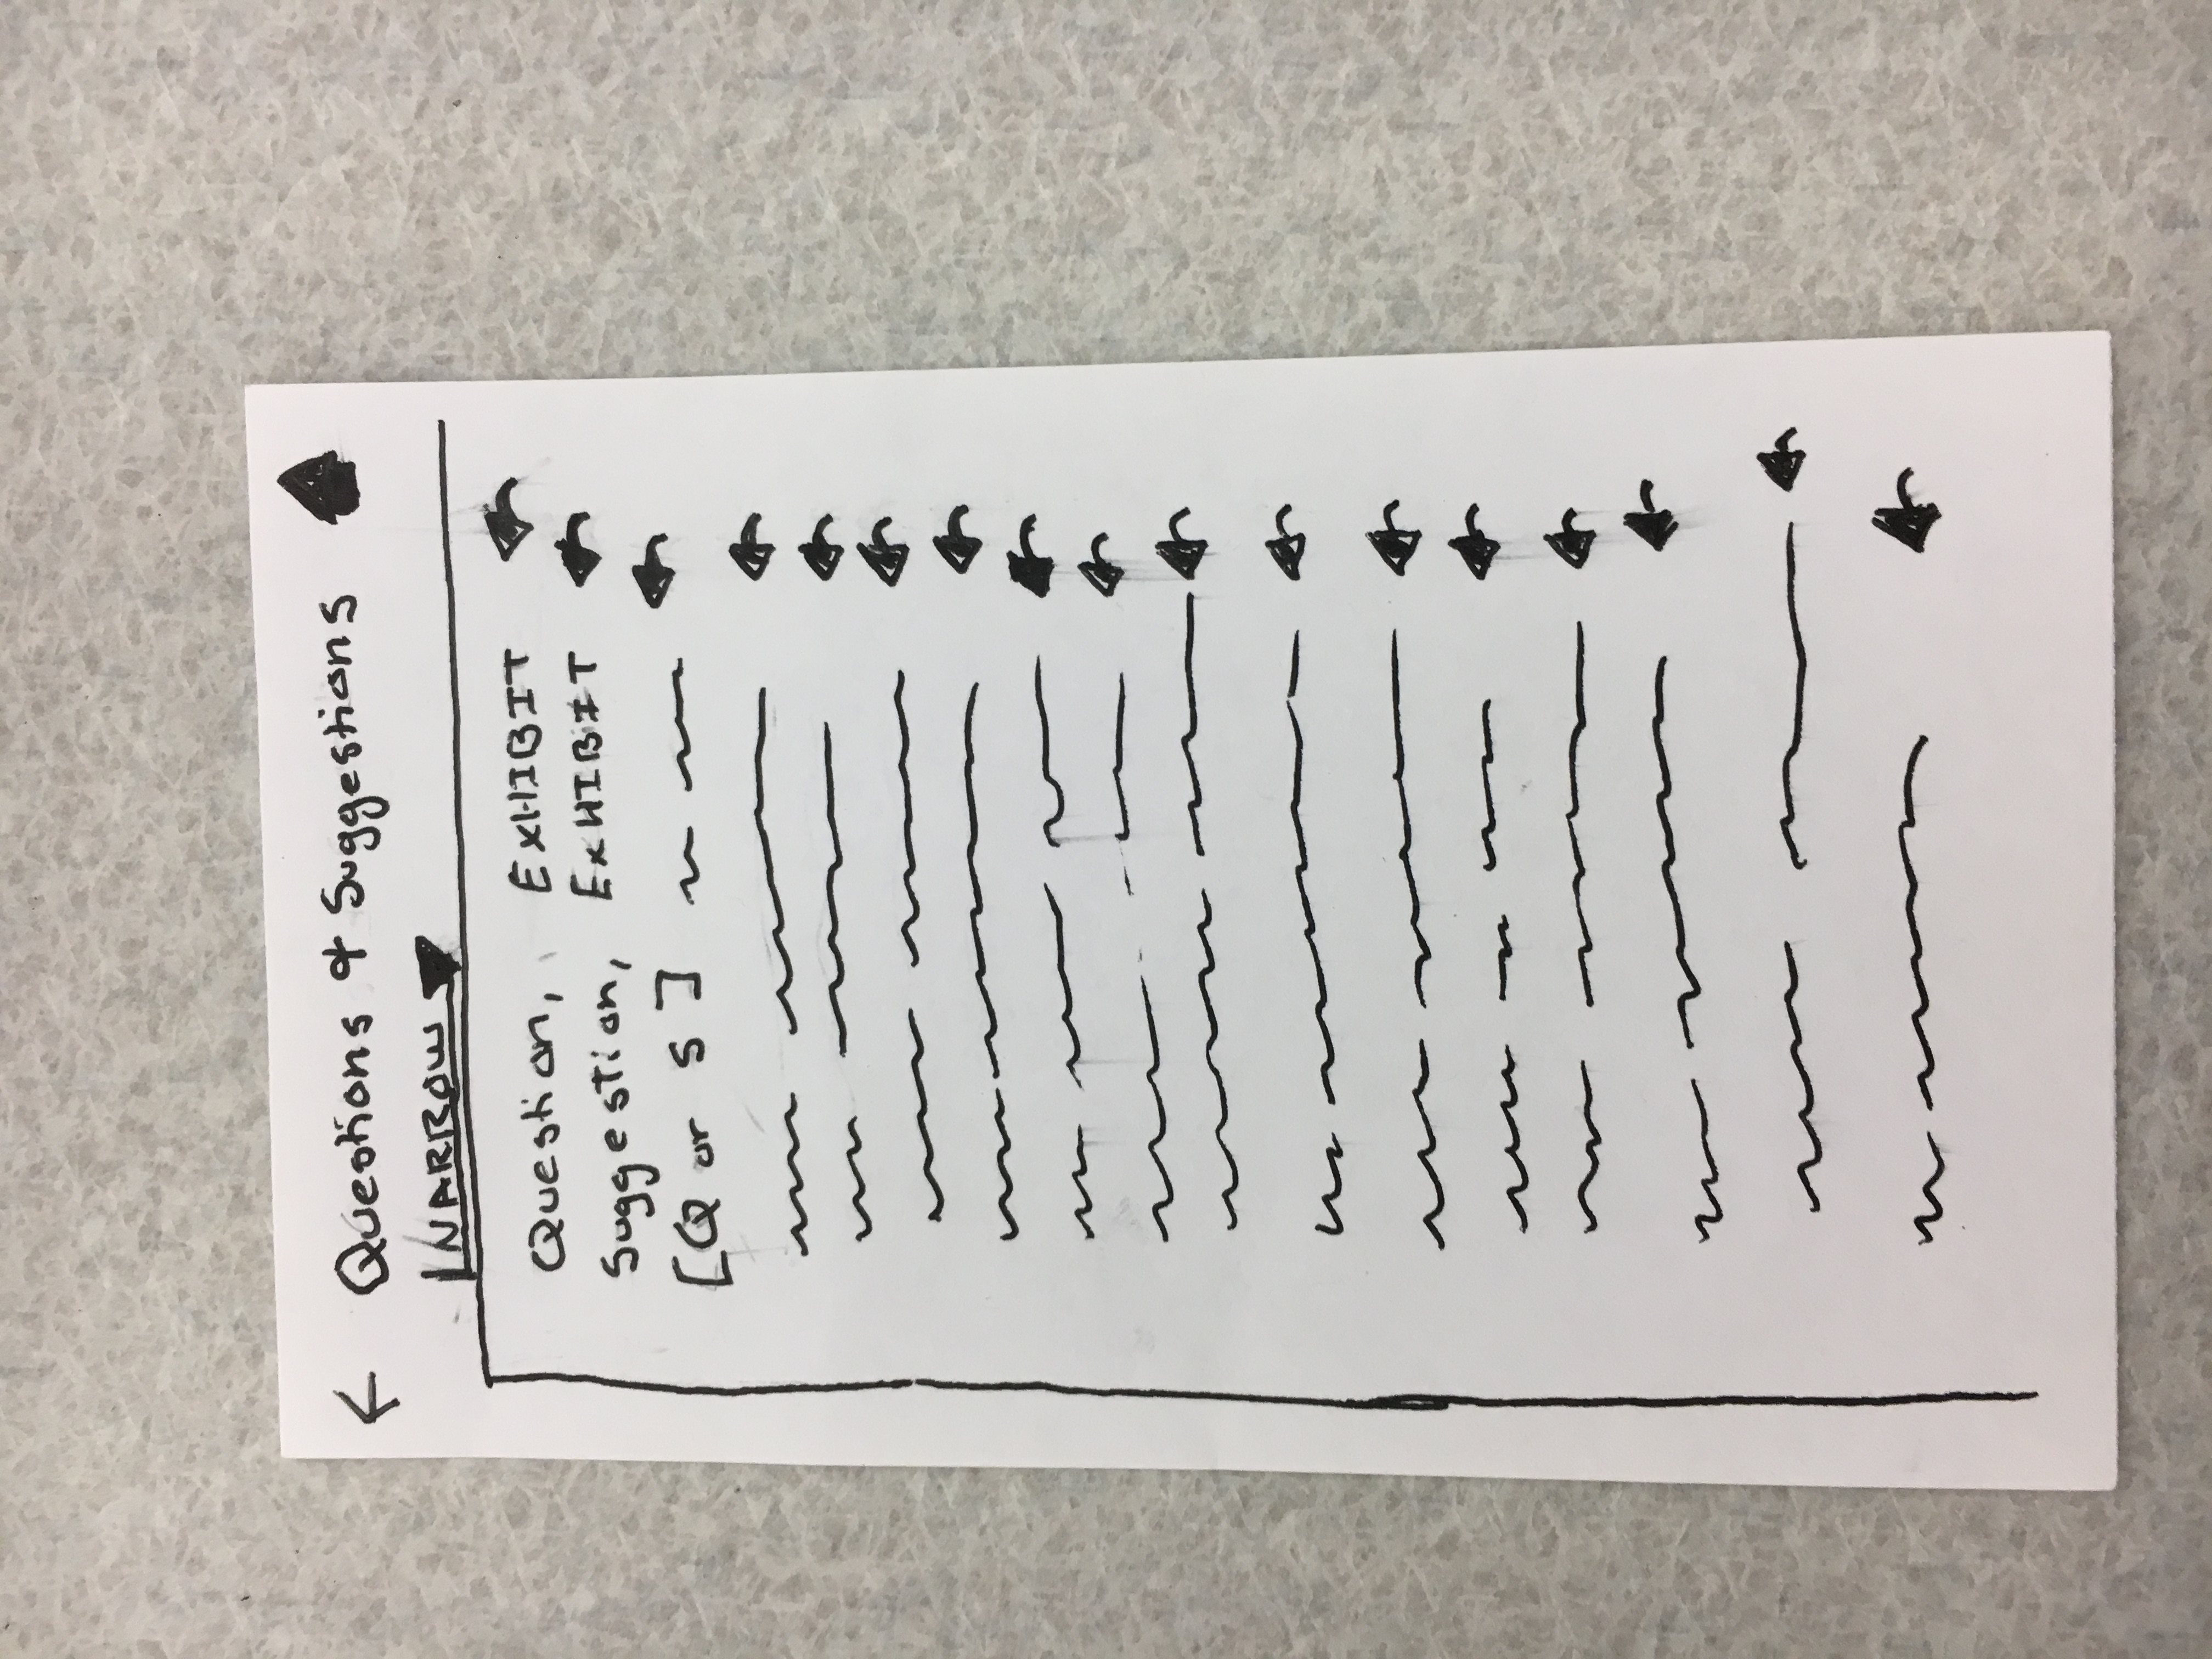 ← Questions & Suggestions
NARROW ▼
Question, EXHIBIT
Suggestion, EXHIBIT
[Q or S]